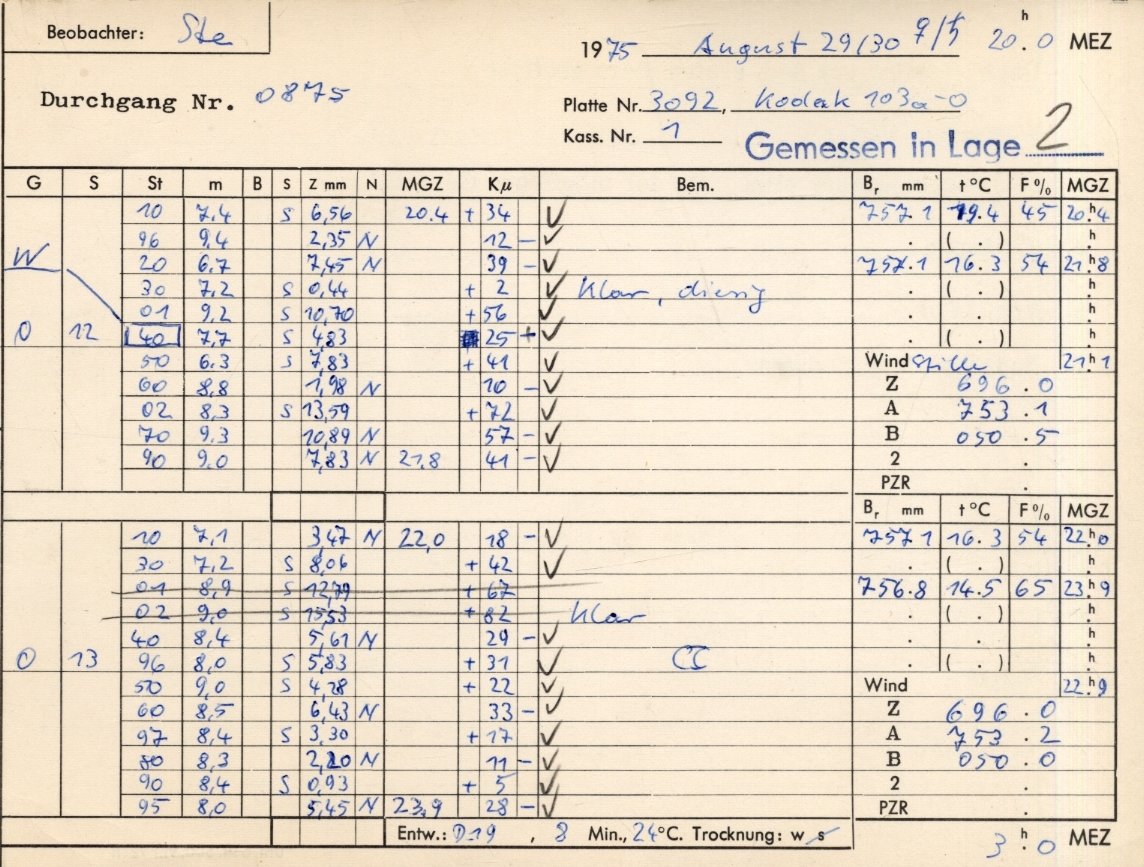 Beobachter: Ste
1975 August 29/30 20.h0 MEZ
Durchgang Nr. 0875
Platte Nr. 3092, Kodak 103a-O
Kass. Nr. 1
Gemessen in Lage 2
G S St m B S Z mm N MGZ Kμ Bem. Br mm t °C F% MGZ
10 7,4 S 6,56 20.4 + 34 ✓ 757.1 19.4 45 20.h4
96 9.4 2,35 N 12 – ✓ . ( . ) .h
W 20 6.7 7,45 N 39 – ✓ 757.1 16.3 54 21.h8
30 7,2 S 0,44 + 2 ✓ Klar, diesig . ( . ) .h
01 9,2 S 10,70 + 56 ✓ . .h
0 12 40 7,7 S 4,83 25 + ✓ . ( . ) .h
50 6.3 S 7,83 + 41 ✓ Wind Stille 21.h1
60 8,8 1,98 N 10 – ✓ Z 696.0
02 8,3 S 13,59 + 72 ✓ A 753.1
70 9.3 10,89 N 57 – ✓ B 050.5
90 9.0 7,83 N 21.8 41 – ✓ 2 .
PZR .
Br mm t °C F% MGZ
10 7,1 3,47 N 22,0 18 – ✓ 757.1 16.3 54 22.h0
30 7,2 S 8,06 + 42 ✓ . ( . ) .h
01 8,9 S 12,79 + 67 756.8 14.5 65 23.h9
02 9,0 S 15,53 + 82 Klar . ( . ) .h
40 8,4 5,61 N 29 – ✓ . .h
0 13 96 8,0 S 5,83 + 31 ✓ . ( . ) .h
50 9,0 S 4,28 + 22 ✓ Wind 22.h9
60 8,5 6,43 N 33 – ✓ Z 696.0
97 8,4 S 3,30 + 17 ✓ A 753.2
80 8.3 2,20 N 11 – ✓ B 050.0
90 8,4 S 0,93 + 5 ✓ 2 .
95 8,0 5,45 N 23,9 28 – ✓ PZR .
Entw.: D19, 8 Min., 24°C. Trocknung: w s
3.h0 MEZ